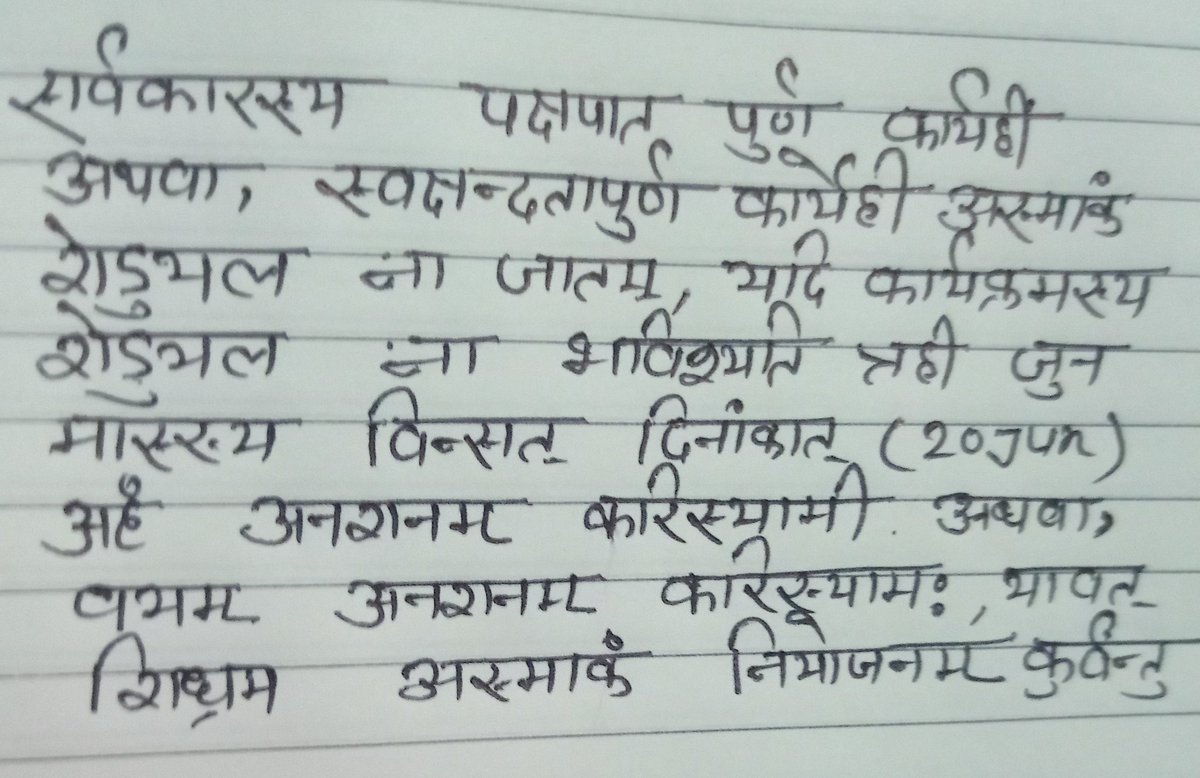 सर्वकारस्य पक्षपात पुर्ण कार्यही
अथवा, स्वक्षन्दतापुर्ण कार्येही अस्माकं
शेडुयल ना जातम्, यदि कार्यक्रमस्य
शेडुयल ना भविश्यति त्रही जुन
मासस्य विन्सत् दिनांकात् (20 Jun)
अहं अनशनम करिस्यामी. अथवा,
वयम अनशनम करिस्यामः, यावत्
शिघ्रम अस्माकं नियोजनम कुर्वन्तु